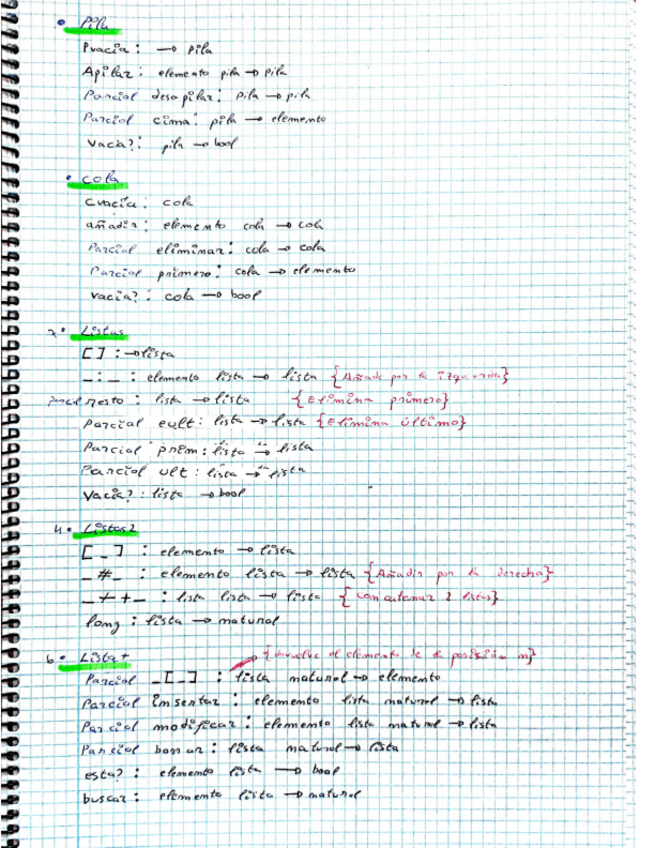 • Pila
Pvacía : → pila
Apilar : elemento pila → pila
Parcial desapilar : pila → pila
Parcial cima : pila → elemento
Vacía? : pila → bool
• cola
Cvacía : cola
añadir : elemento cola → cola
Parcial eliminar : cola → cola
Parcial primero : cola → elemento
vacía? : cola → bool
• Listas
[ ] : → lista
_:_ : elemento lista → lista {Añade por la izquierda}
parcial resto : lista → lista {Elimina primero}
parcial eult : lista → lista {Elimina último}
Parcial prim : lista → lista
Parcial ult : lista → lista
Vacía? : lista → bool
4. Listas2
[_] : elemento → lista
_#_ : elemento lista → lista {Añadir por la derecha}
_++_ : lista lista → lista {concatenar 2 listas}
long : lista → natural
6. Lista+
{devuelve el elemento de la posición n}
Parcial _[_] : lista natural → elemento
Parcial insertar : elemento lista natural → lista
Parcial modificar : elemento lista natural → lista
Parcial borrar : lista natural → lista
esta? : elemento lista → bool
buscar : elemento lista → natural